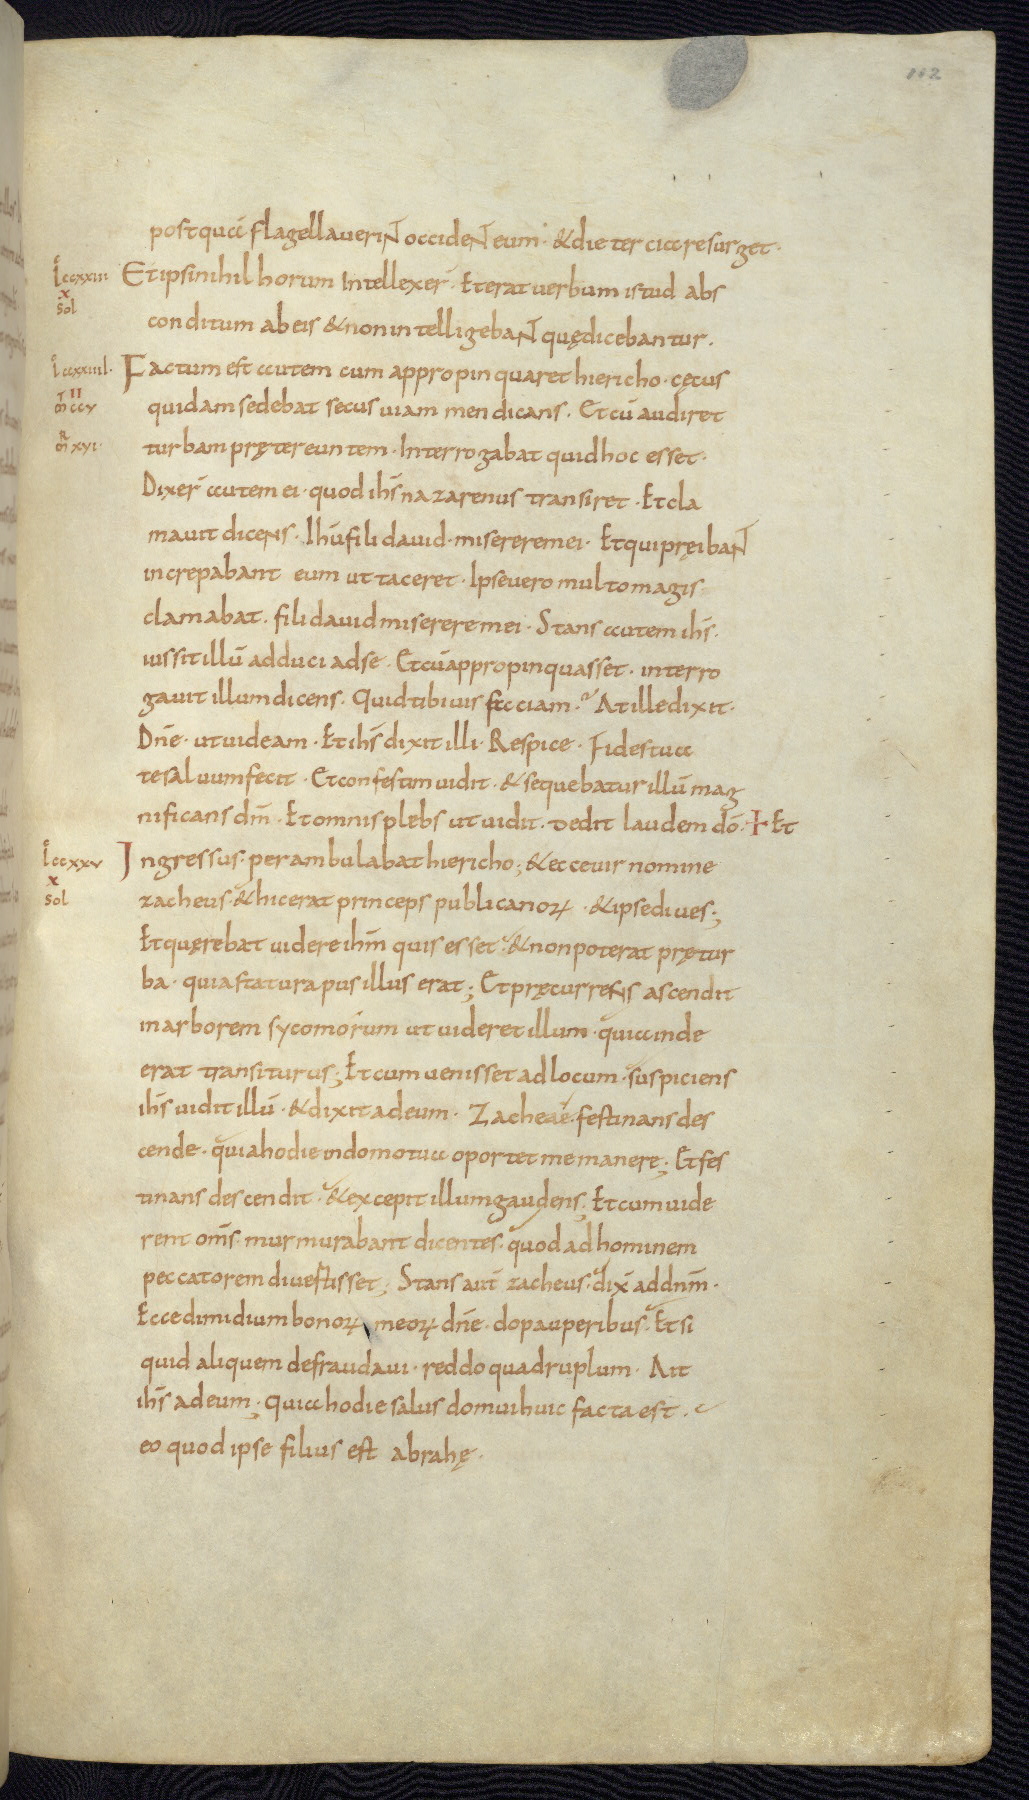 112
postquā flagellaverint occident eum · & die tercia resurget ·
l ccxxiii
x
sol
Et ipsi nihil horum intellexer̄ · Et erat uerbum istud abs
conditum ab eis & non intelligebant quę dicebantur .
l ccxxiiii ·
m̄ ccv
m̄r xvi ·
Factum est autem cum appropinquaret hiericho · cęcus
quidam sedebat secus uiam mendicans . Et cū audiret
turbam prętereuntem · Interrogabat quid hoc esset ·
Dixer̄ autem ei · quod ih̄s nazarenus transiret · Et cla
mauit dicens · Ihū fili dauid · miserere mei · Et qui pręibant
increpabant eum ut taceret · Ipse uero multo magis
clamabat . fili dauid miserere mei · Stans autem ih̄s .
iussit illū adduci ad se · Et cū appropinquasset . interro
gauit illum dicens . Quid tibi uis faciam ·? At ille dixit ·
Dn̄e · ut uideam · Et ih̄s dixit illi · Respice · Fides tua
te saluum fecit · Et confestim uidit · & sequebatur illū mag
nificans dm̄ · Et omnis plebs ut uidit . dedit laudem dō · + Et
l ccxxv
x
sol
Ingressus · perambulabat hiericho ; & ecce uir nomine
zacheus · & hic erat princeps publicanoꝝ · & ipse diues ;
Et quęrebat uidere ih̄m quis esset · & non poterat prę tur
ba · quia statura pusillus erat ; Et pręcurrens ascendit
in arborem sycomorum ut uideret illum · quia inde
erat transiturus ; Et cum uenisset ad locum · suspiciens
ih̄s uidit illū · & dixit ad eum · Zacheae · festinans des
cende · quia hodie in domo tua oportet me manere ; Et fes
tinans descendit · & excepit illum gaudens ; Et cum uide
rent om̄s · murmurabant dicentes · quod ad hominem
peccatorem divertisset ; Stans aut̄ zacheus · dix̄ ad dnm̄ ·
Ecce dimidium bonoꝝ meoꝝ dn̄e · do pauperibus · Et si
quid aliquem defraudaui · reddo quadruplum · Ait
ih̄s ad eum ; Quia hodie salus domui huic facta est .
eo quod ipse filius est abrahę ·